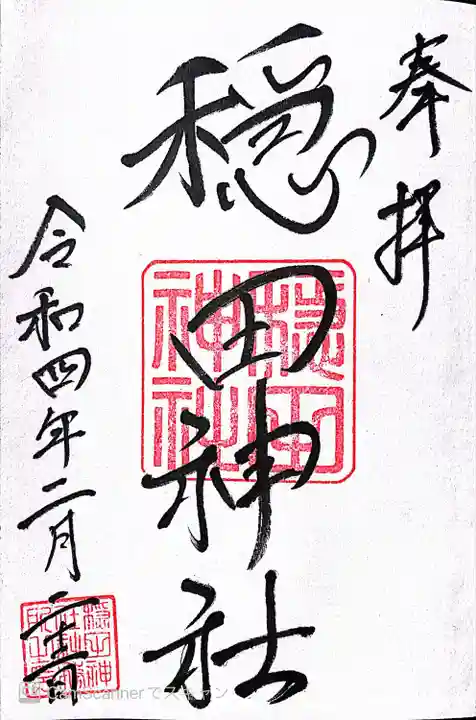 奉拝
穏田神社
穏田
神社
令和四年二月
CamScannerでスキャン